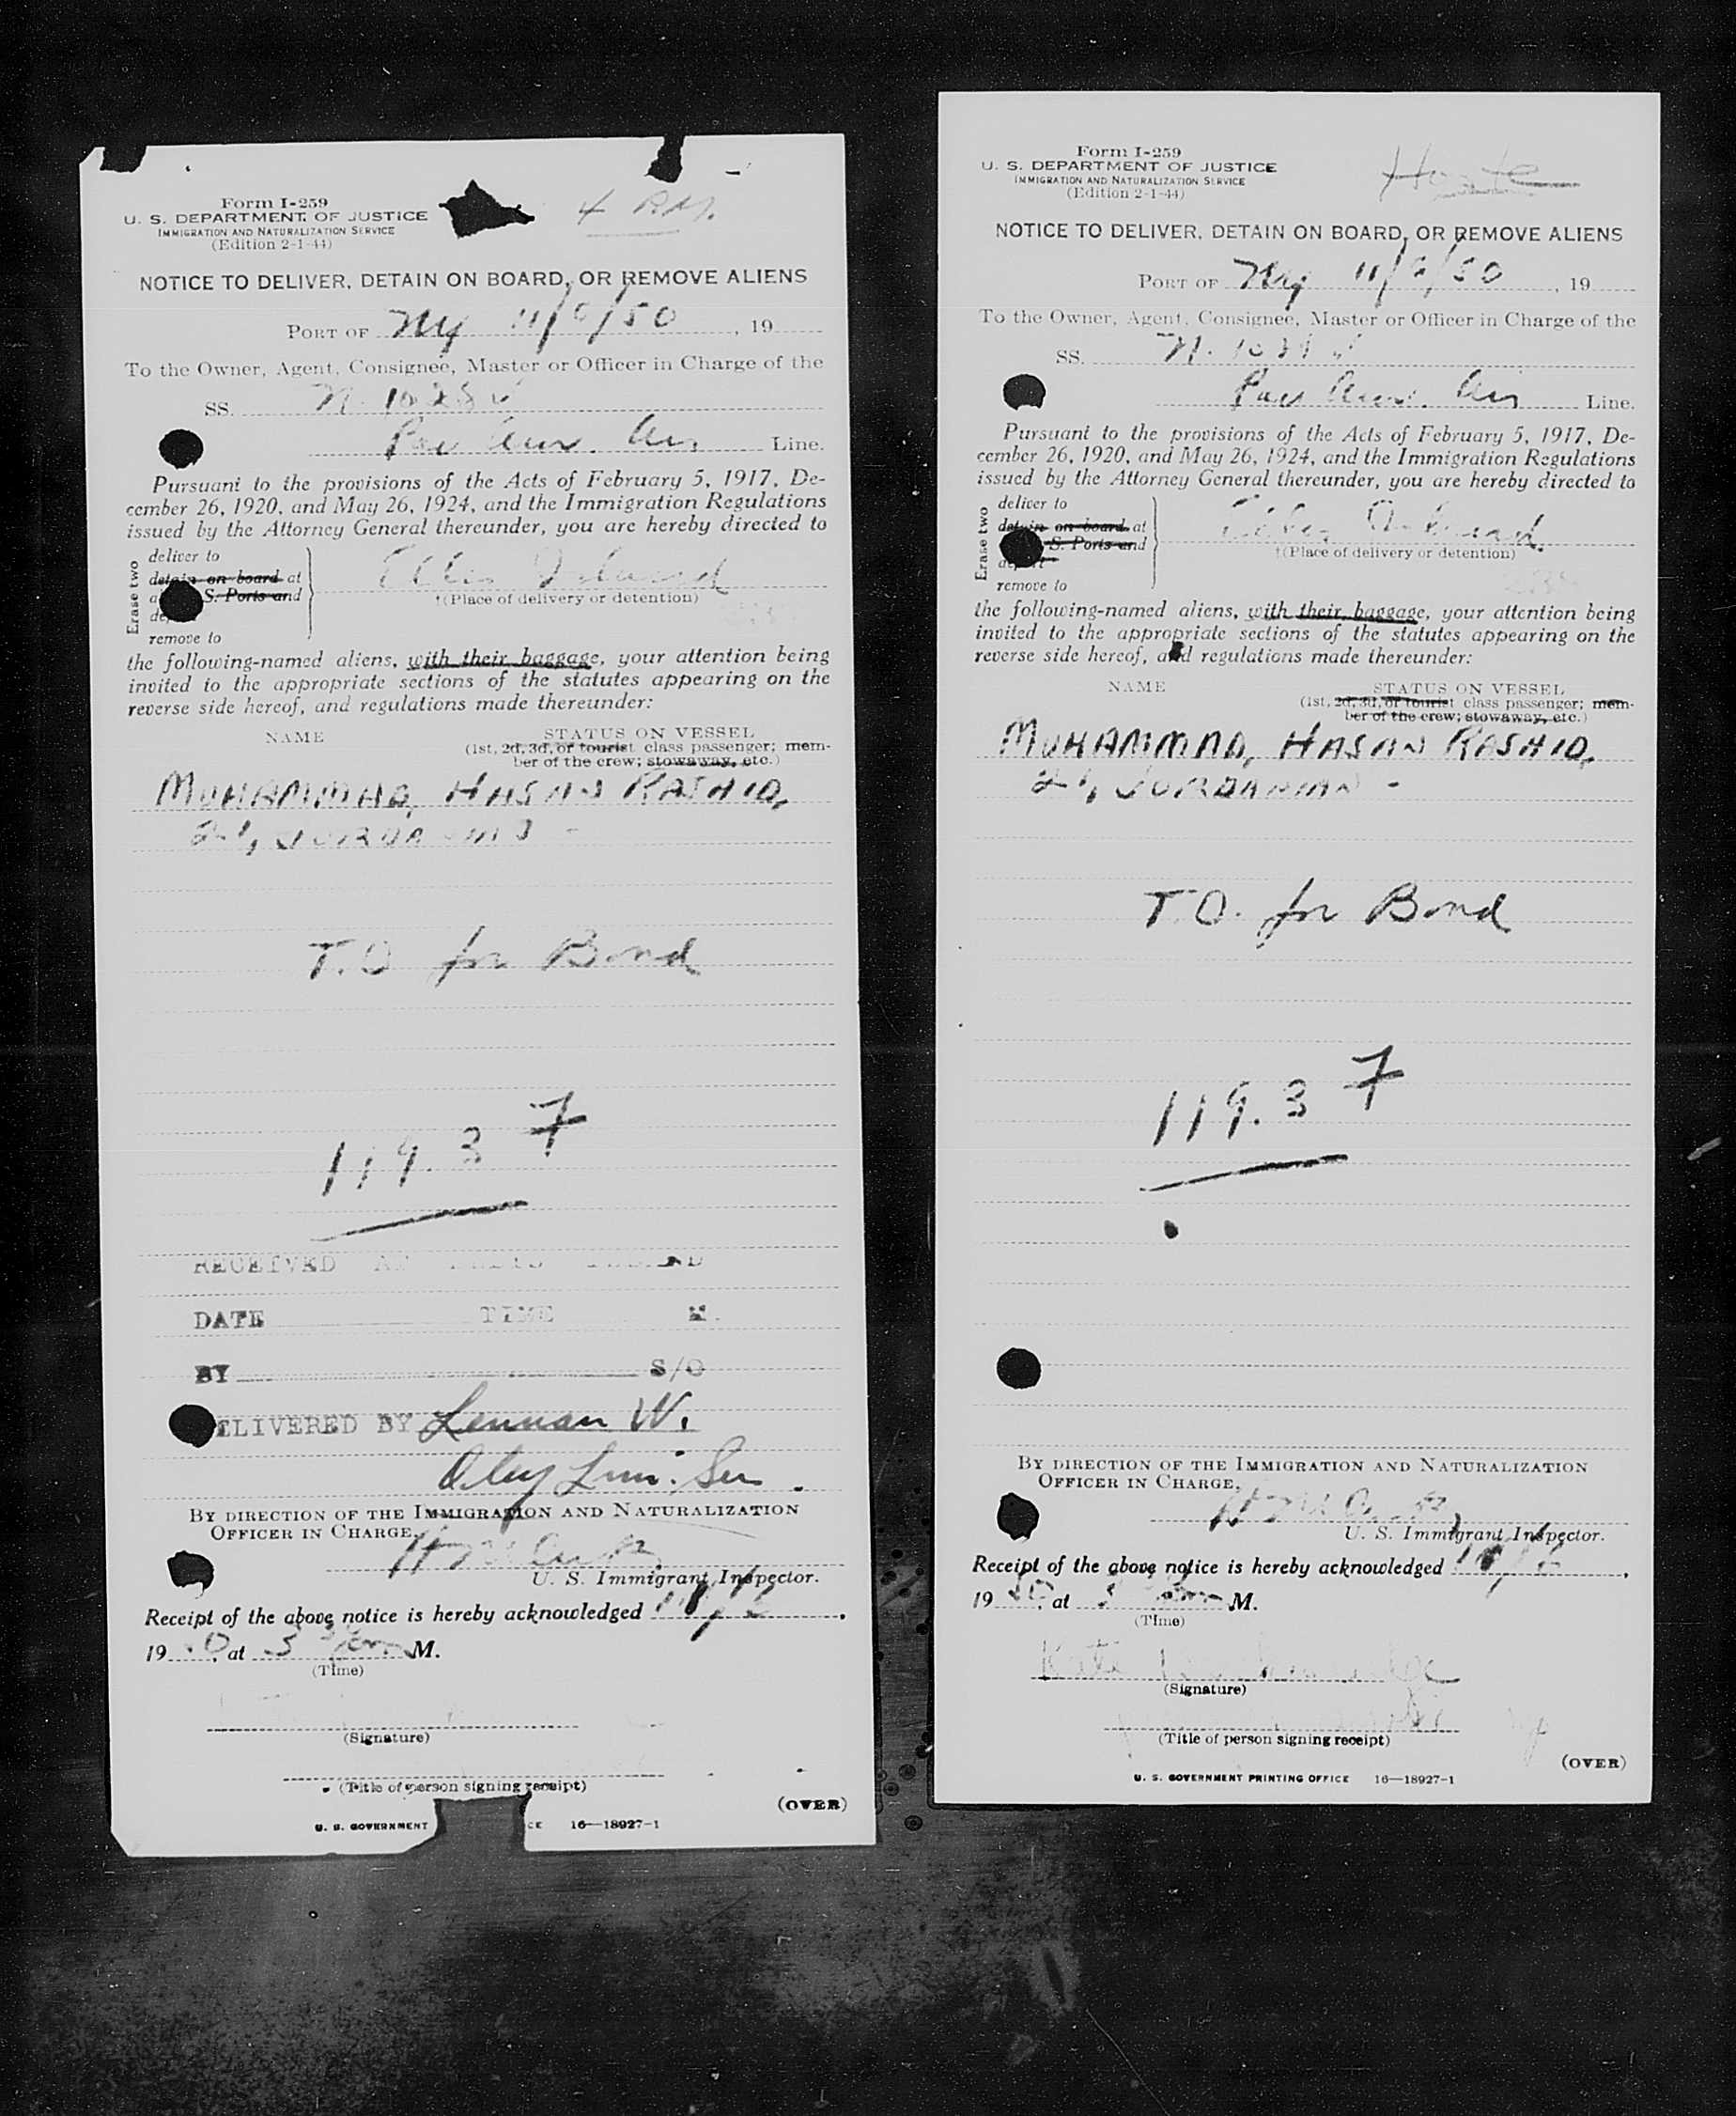 Form I-259
U. S. DEPARTMENT OF JUSTICE
IMMIGRATION AND NATURALIZATION SERVICE
(Edition 2-1-44)
NOTICE TO DELIVER, DETAIN ON BOARD, OR REMOVE ALIENS
PORT OF NY 11/ /50, 19
To the Owner, Agent, Consignee, Master or Officer in Charge of the
SS.
Pan Am. Air Line.
Pursuant to the provisions of the Acts of February 5, 1917, De-
cember 26, 1920, and May 26, 1924, and the Immigration Regulations
issued by the Attorney General thereunder, you are hereby directed to
Erase two
deliver to
detain on board at
S. Ports and
remove to
Ellis Island
†(Place of delivery or detention)
the following-named aliens, with their baggage, your attention being
invited to the appropriate sections of the statutes appearing on the
reverse side hereof, and regulations made thereunder:
NAME
STATUS ON VESSEL
(1st, 2d, 3d, or tourist class passenger; mem-
ber of the crew; stowaway, etc.)
MUHAMMAD, HASAN RASHID,
T.D for Bond
119.37
RECEIVED
DATE TIME M.
BY S/O
ELIVERED BY Lennan W.
BY DIRECTION OF THE IMMIGRATION AND NATURALIZATION
OFFICER IN CHARGE.
U. S. Immigrant Inspector.
Receipt of the above notice is hereby acknowledged
19 at M.
(Time)
(Signature)
(Title of person signing receipt)
(OVER)
U. S. GOVERNMENT CE 16—18927-1
Form I-259
U. S. DEPARTMENT OF JUSTICE
IMMIGRATION AND NATURALIZATION SERVICE
(Edition 2-1-44)
NOTICE TO DELIVER, DETAIN ON BOARD, OR REMOVE ALIENS
PORT OF NY 11/ /50, 19
To the Owner, Agent, Consignee, Master or Officer in Charge of the
SS.
Pan Am. Air Line.
Pursuant to the provisions of the Acts of February 5, 1917, De-
cember 26, 1920, and May 26, 1924, and the Immigration Regulations
issued by the Attorney General thereunder, you are hereby directed to
Erase two
deliver to
detain on board at
S. Ports and
remove to
†(Place of delivery or detention)
the following-named aliens, with their baggage, your attention being
invited to the appropriate sections of the statutes appearing on the
reverse side hereof, and regulations made thereunder:
NAME
STATUS ON VESSEL
(1st, 2d, 3d, or tourist class passenger; mem-
ber of the crew; stowaway, etc.)
MUHAMMAD, HASAN RASHID,
JORDANIAN -
T.D. for Bond
119.37
BY DIRECTION OF THE IMMIGRATION AND NATURALIZATION
OFFICER IN CHARGE.
U. S. Immigrant Inspector.
Receipt of the above notice is hereby acknowledged
19 at M.
(Time)
(Signature)
(Title of person signing receipt)
(OVER)
U. S. GOVERNMENT PRINTING OFFICE 16—18927-1